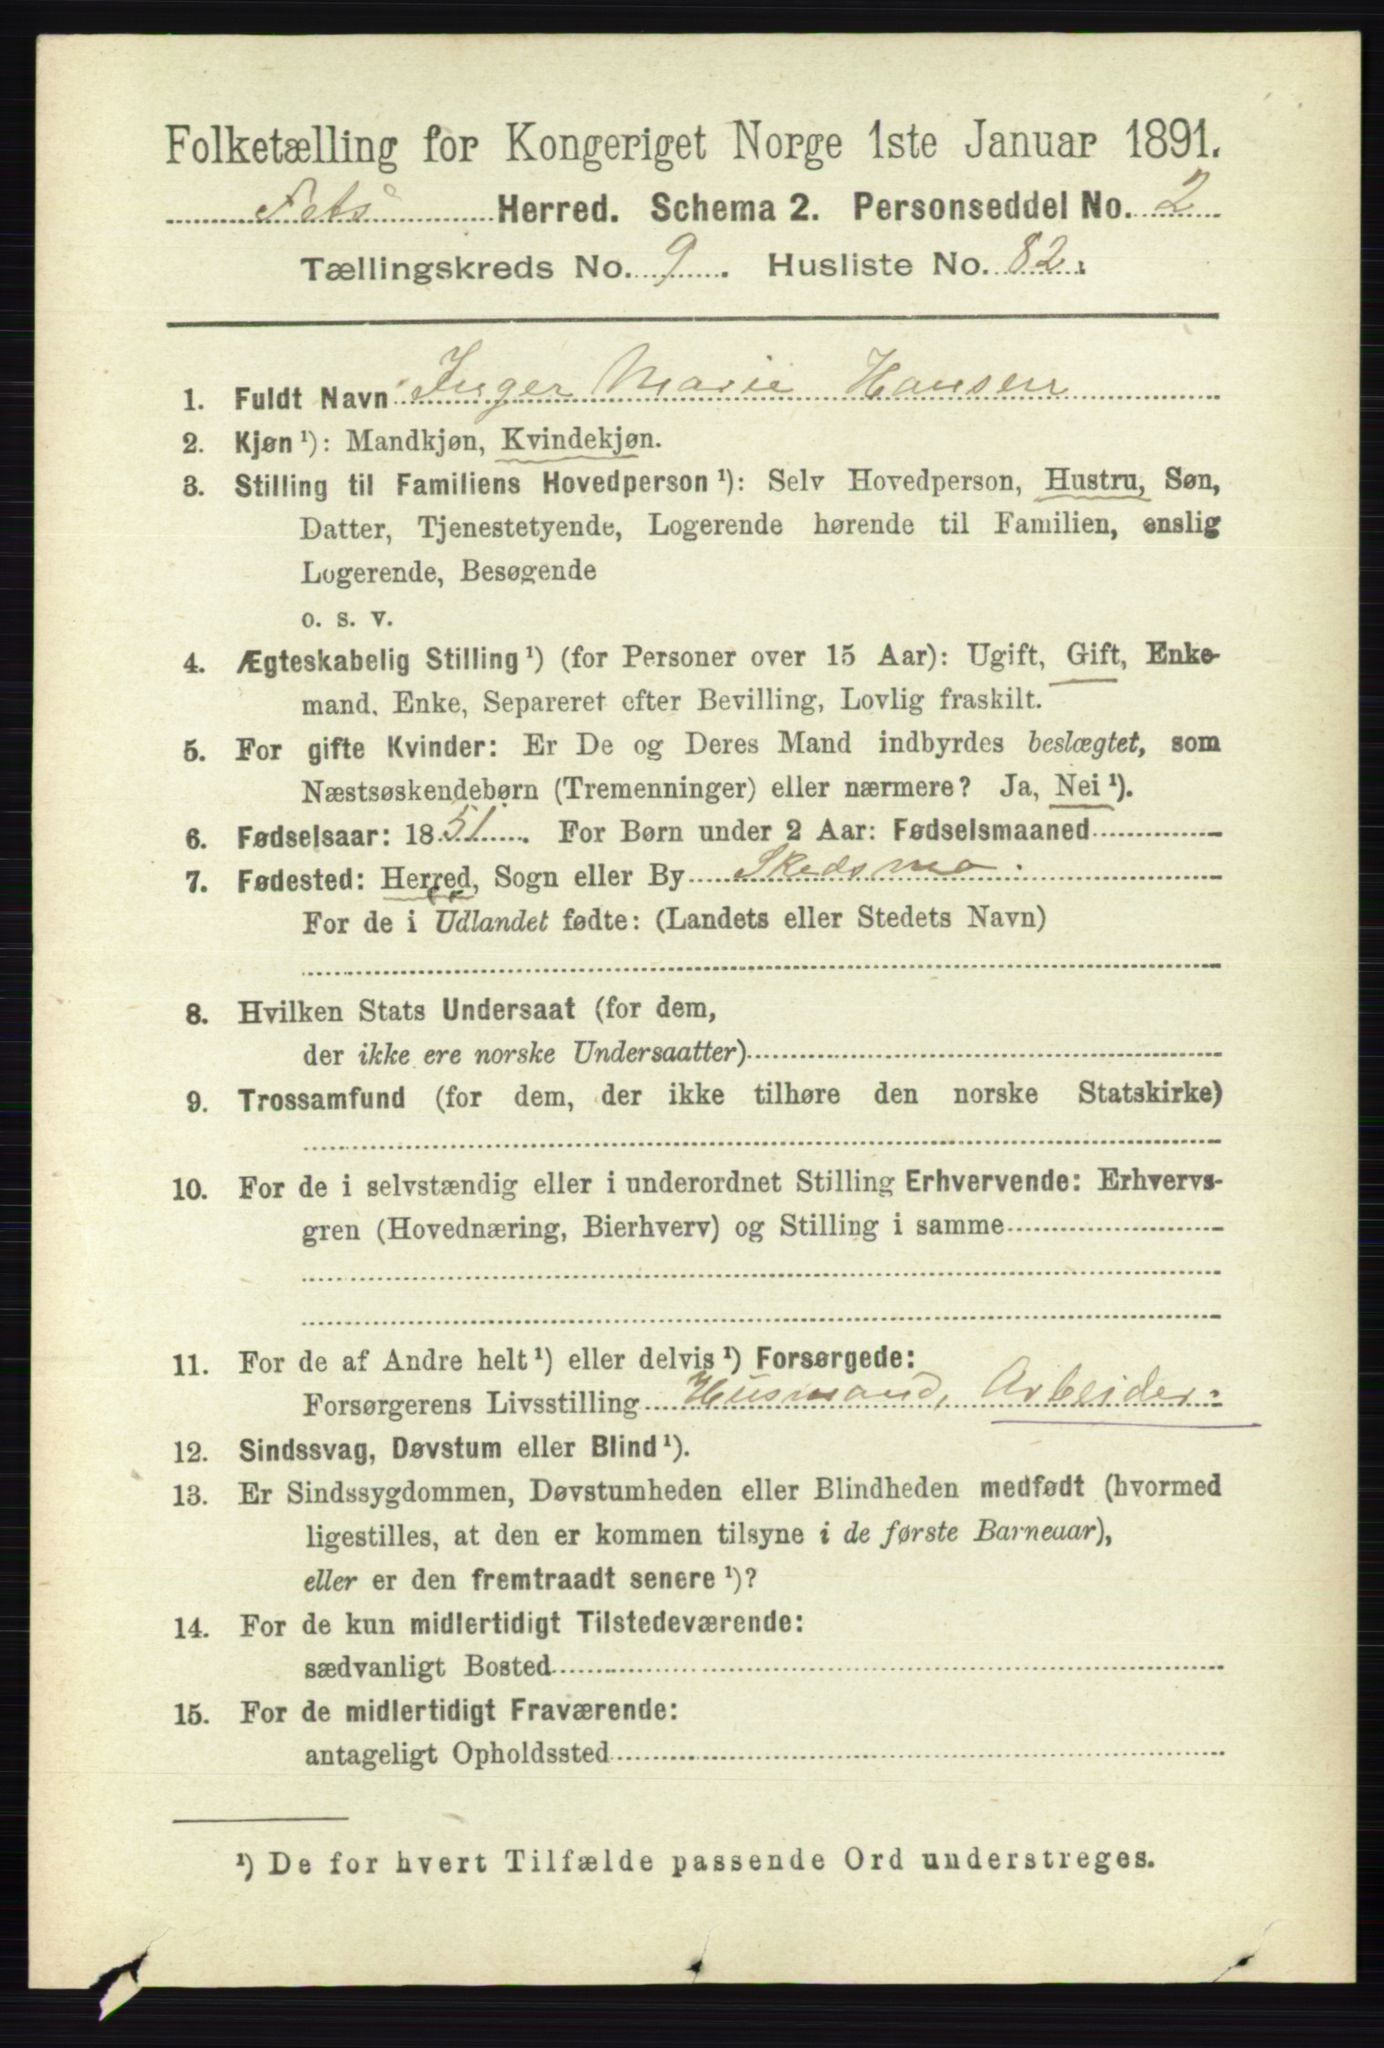 Folketælling for Kongeriget Norge 1ste Januar 1891.
Fets Herred. Schema 2. Personseddel No. 2
Tællingskreds No. 9. Husliste No. 82.
1. Fuldt Navn Inger Marie Hansen
2. Kjøn¹): Mandkjøn, Kvindekjøn.
3. Stilling til Familiens Hovedperson¹): Selv Hovedperson, Hustru, Søn,
Datter, Tjenestetyende, Logerende hørende til Familien, enslig
Logerende, Besøgende
o. s. v.
4. Ægteskabelig Stilling¹) (for Personer over 15 Aar): Ugift, Gift, Enke-
mand, Enke, Separeret efter Bevilling, Lovlig fraskilt.
5. For gifte Kvinder: Er De og Deres Mand indbyrdes beslægtet, som
Næstsøskendebørn (Tremenninger) eller nærmere? Ja, Nei¹).
6. Fødselsaar: 1851. For Børn under 2 Aar: Fødselsmaaned
7. Fødested: Herred, Sogn eller By Skedsmo.
For de i Udlandet fødte: (Landets eller Stedets Navn)
8. Hvilken Stats Undersaat (for dem,
der ikke ere norske Undersaatter)
9. Trossamfund (for dem, der ikke tilhøre den norske Statskirke)
10. For de i selvstændig eller i underordnet Stilling Erhvervende: Erhvervs-
gren (Hovednæring, Bierhverv) og Stilling i samme
11. For de af Andre helt¹) eller delvis¹) Forsørgede:
Forsørgerens Livsstilling Husmand, Arbeider
12. Sindssvag, Døvstum eller Blind¹).
13. Er Sindssygdommen, Døvstumheden eller Blindheden medfødt (hvormed
ligestilles, at den er kommen tilsyne i de første Barneaar),
eller er den fremtraadt senere¹)?
14. For de kun midlertidigt Tilstedeværende:
sædvanligt Bosted
15. For de midlertidigt Fraværende:
antageligt Opholdssted
¹) De for hvert Tilfælde passende Ord understreges.